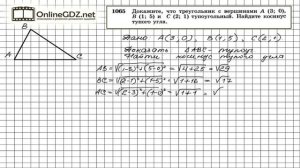 OnlineGDZ.net
1065 Докажите, что треугольник с вершинами A (3; 0),
B (1; 5) и C (2; 1) тупоугольный. Найдите косинус
тупого угла.
B
A
C
Дано A(3,0), B(1,5), C(2,1)
Доказать ΔABC - тупоуг
Найти косинус тупого угла
AB = √(1-3)²+(5-0)² = √4+25 = √29
BC = √(2-1)²+(1-5)² = √1+16 = √17
AC = √(2-3)²+(1-0)² = √1+1 = √